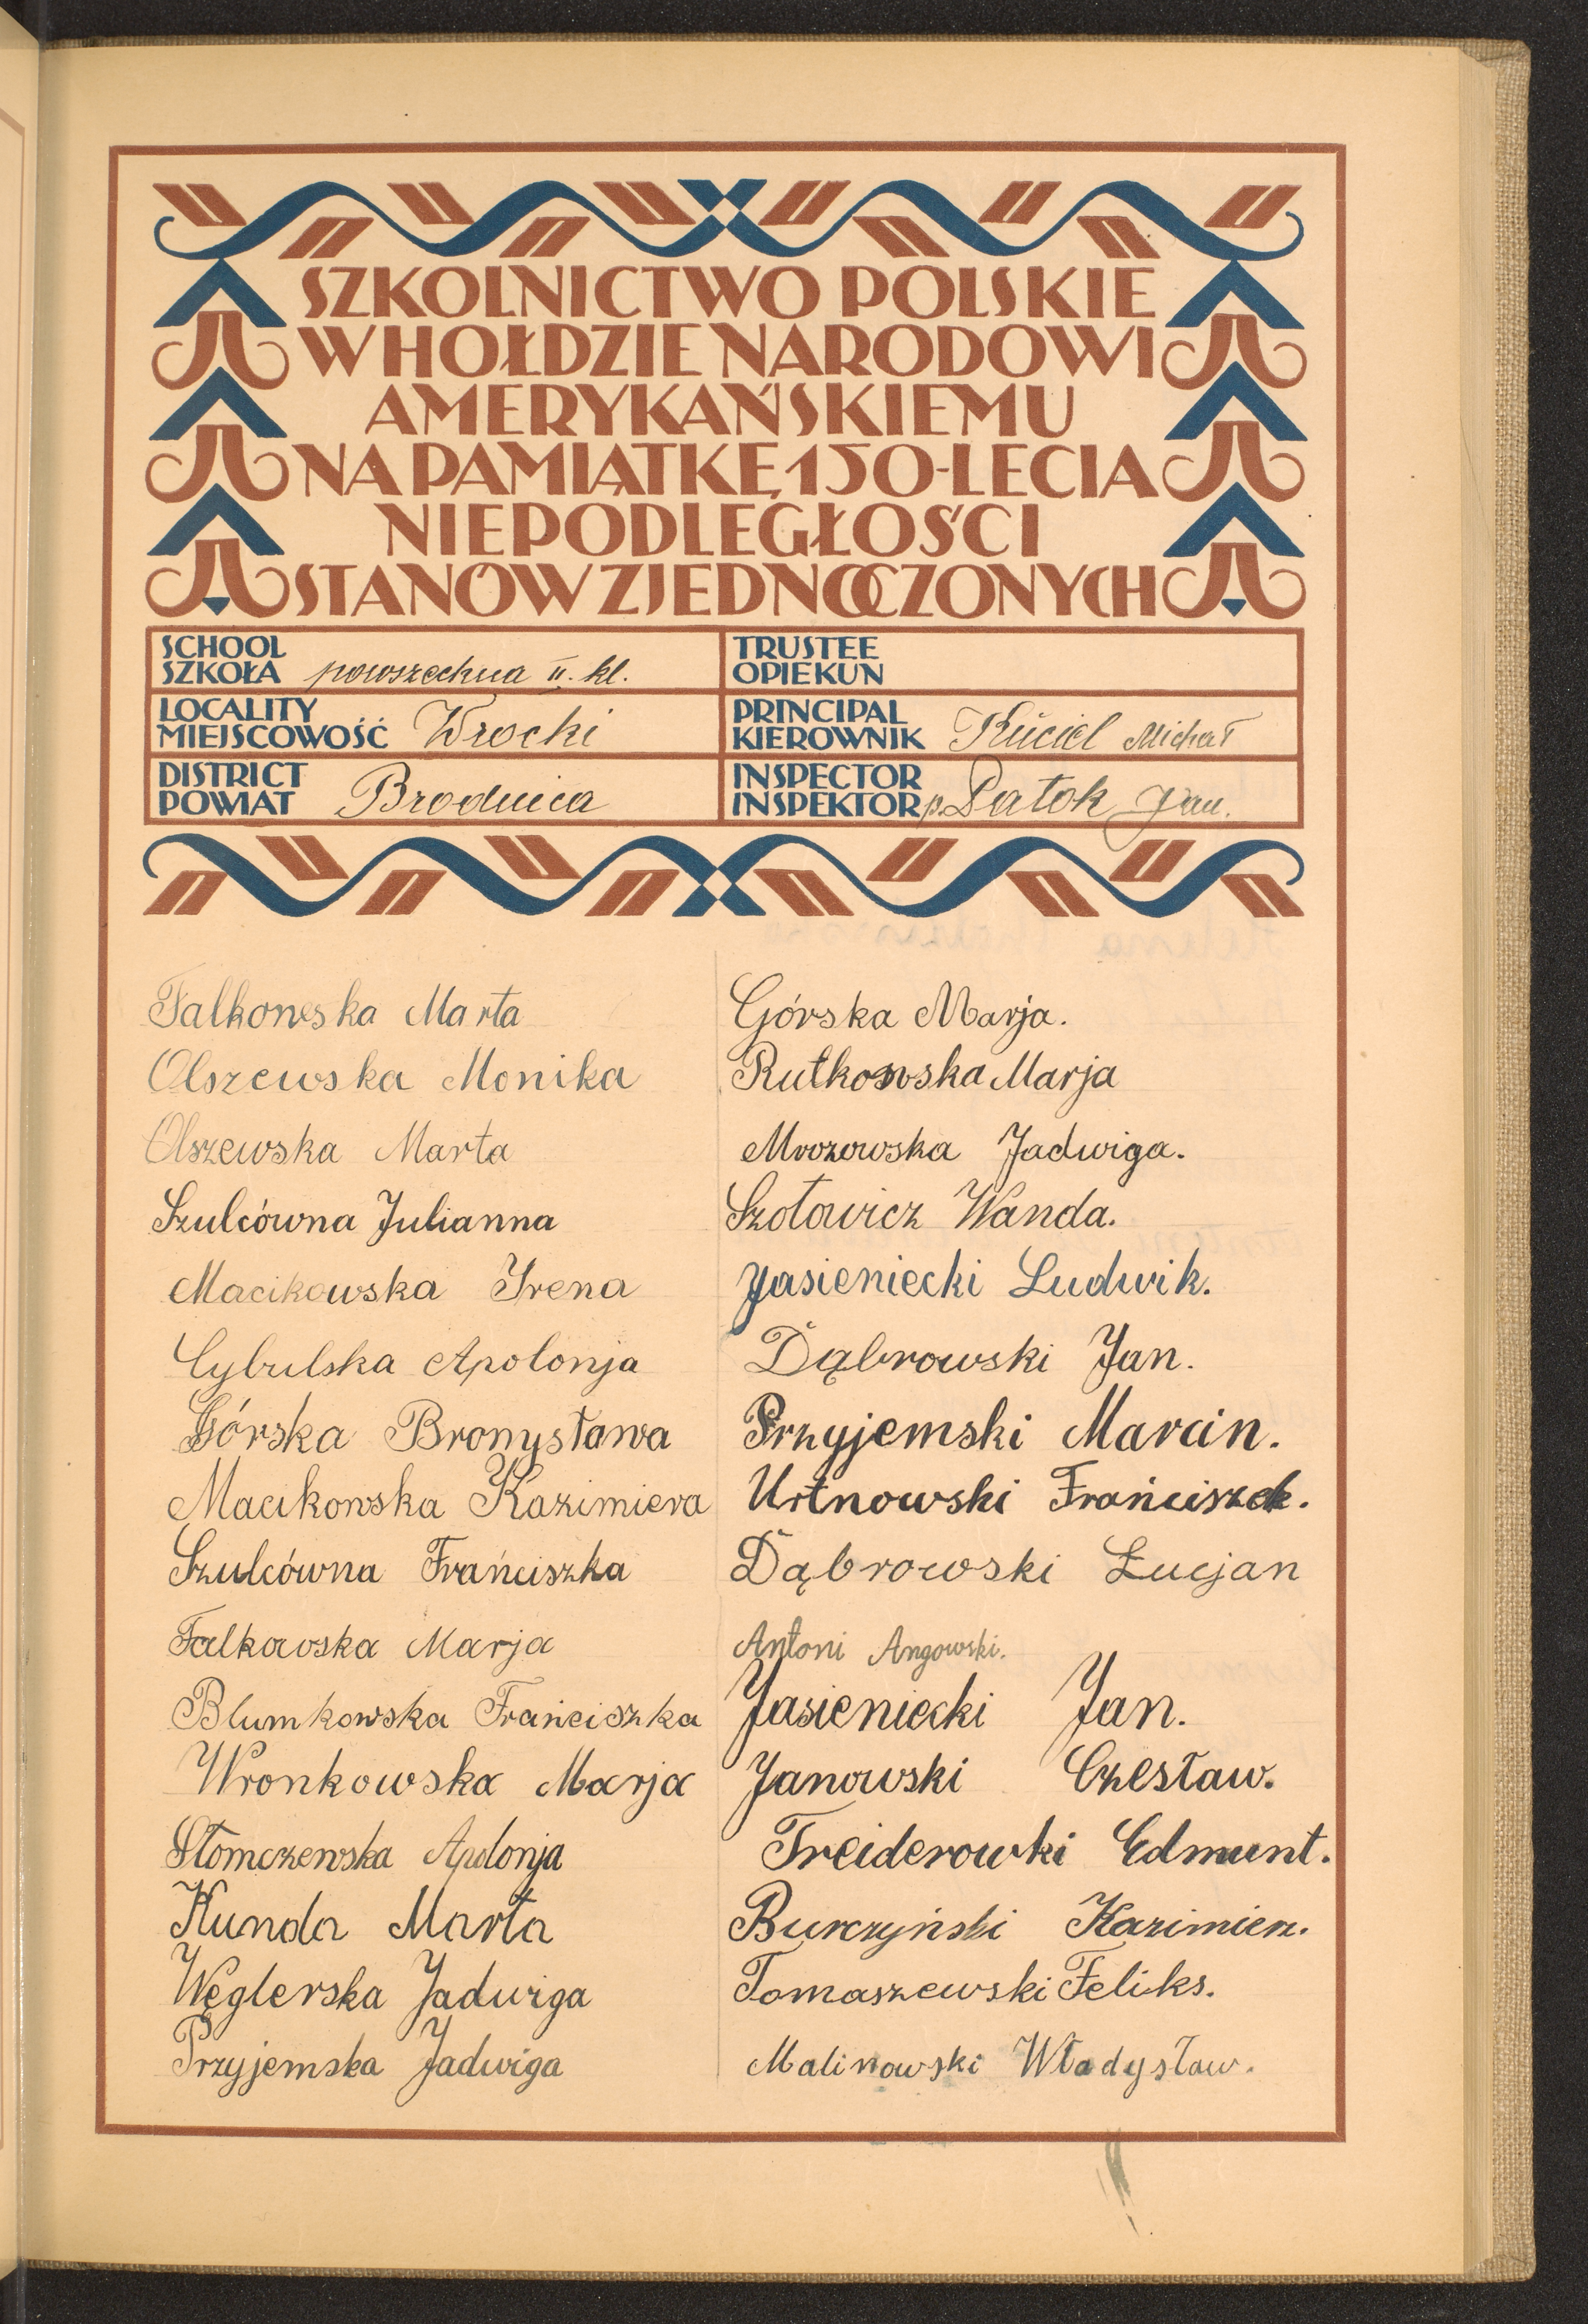 SZKOLNICTWO POLSKIE
W HOŁDZIE NARODOWI
AMERYKAŃSKIEMU
NA PAMIĄTKĘ 150-LECIA
NIEPODLEGŁOŚCI
STANÓW ZJEDNOCZONYCH
SCHOOL
SZKOŁA powszechna II. kl.
TRUSTEE
OPIEKUN
LOCALITY
MIEJSCOWOŚĆ Wrocki
PRINCIPAL
KIEROWNIK Kuciel Michał
DISTRICT
POWIAT Brodnica
INSPECTOR
INSPEKTOR p. Patok Jan.
Falkowska Marta
Olszewska Monika
Olszewska Marta
Szulcówna Julianna
Macikowska Irena
Cybulska Apolonja
Górska Bronysława
Macikowska Kazimiera
Szulcówna Frańciszka
Falkowska Marja
Blumkowska Frańciszka
Wronkowska Marja
Słomczewska Apolonja
Kunda Marta
Węglerska Jadwiga
Przyjemska Jadwiga
Górska Marja.
Rutkowska Marja
Mrozowska Jadwiga.
Szołowicz Wanda.
Jasieniecki Ludwik.
Dąbrowski Jan.
Przyjemski Marcin.
Urtnowski Frańciszek.
Dąbrowski Łucjan
Antoni Angowski.
Jasieniecki Jan.
Janowski Czesław.
Treiderowki Edmunt.
Burczyński Kazimierz.
Tomaszewski Feliks.
Malinowski Władysław.